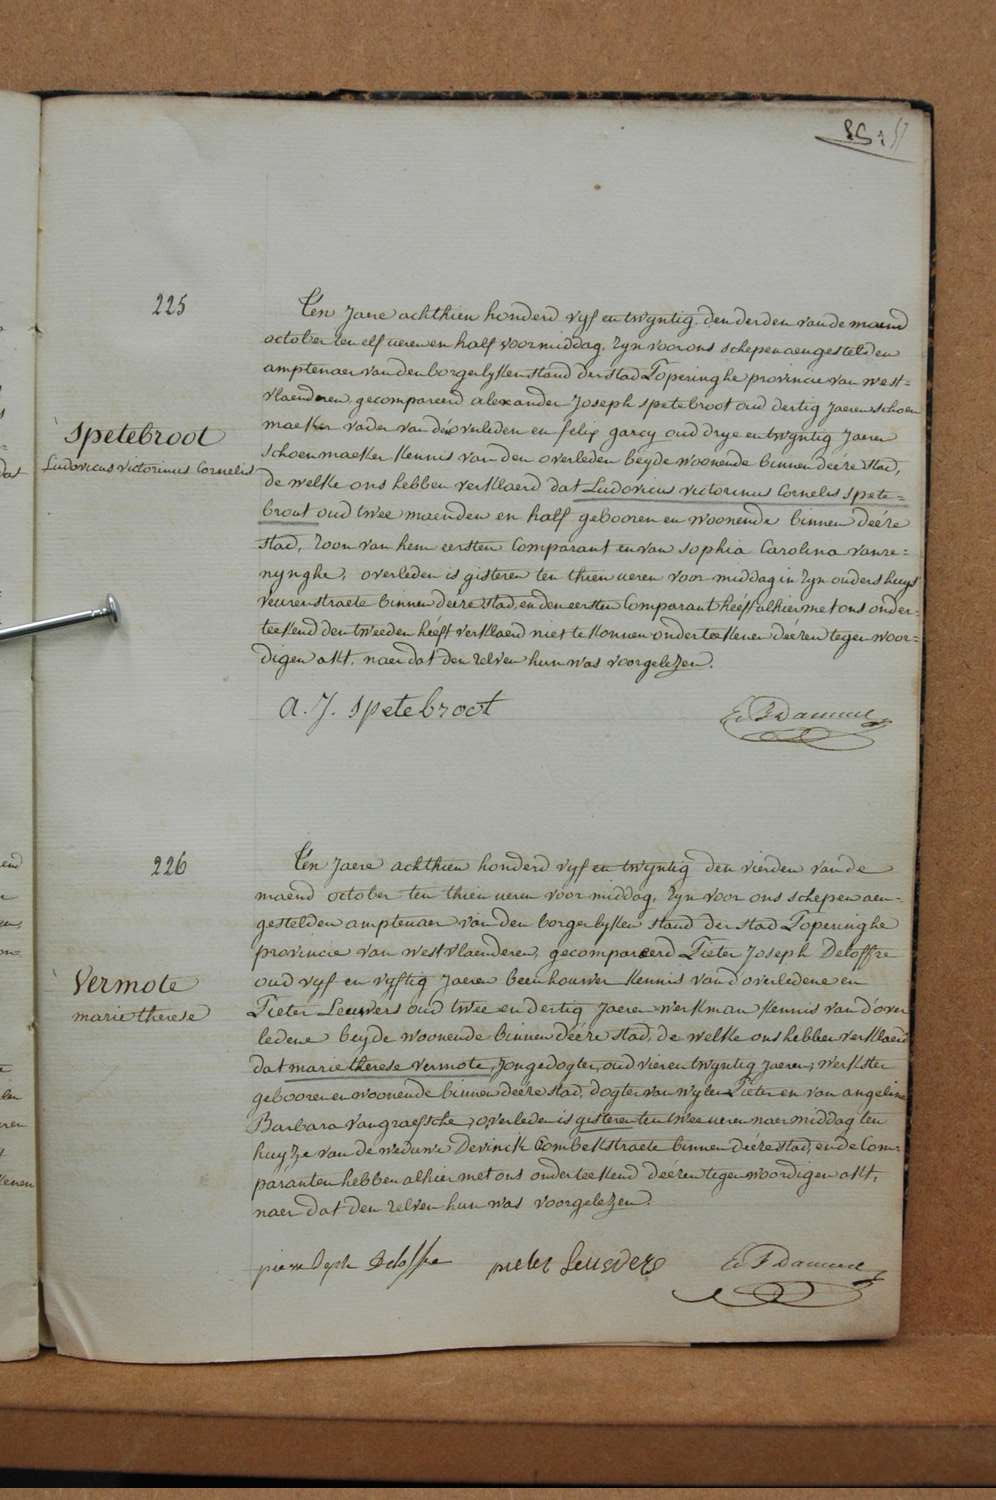 225
Spetebroot
Ludovicus victorinus Cornelis
T'en Jaere achthien honderd vyf en twyntig. den derden van de maend
october ten elf ueren en half voormiddag. zyn voor ons schepen aengestelden
amptenaer van den borgerlyken stand der stad Poperinghe provincie van west=
vlaenderen, gecompareerd alexander Joseph spetebroot oud dertig Jaeren schoen
maeker vader van de overleden en felix garcy oud drye en twyntig Jaeren
schoenmaeker kennis van den overleden beyde woonende binnen deéze stad,
de welke ons hebben verklaerd dat Ludovicus victorinus Cornelis spete=
brout oud twee maenden en half gebooren en woonende binnen deéze
stad, zoon van hem eersten Comparant en van sophia Carolina vanre=
nynghe, overleden is gisteren ten thien ueren voor middag in zyn ouders huys
veurenstraete binnen deéze stad, en den eersten Comparant heéft alhier met ons onder-
teekend den tweeden heéft verklaerd niet te konnen onderteekenen deézen tegenwoor=
digen akt, naer dat den zelven hun was voorgelezen.
A. J. spetebroot
226
Vermote
marie therese
T'en Jaere achthien honderd vyf en twyntig den vierden van de
maend october ten thien ueren voor middag, zyn voor ons schepen aen-
gestelden amptenaer van den borgerlyken stand der stad Poperinghe
provincie van westvlaenderen, gecompareerd Pieter Joseph Deloffre
oud vyf en vyftig Jaeren beenhouwer kennis van d'overledene en
Pieter Leuwers oud twee en dertig Jaeren werkman kennis van d'over
ledene beyde woonende binnen deéze stad, de welke ons hebben verklaerd
dat marie therese vermote, Jongedogter, oud vier en twyntig Jaeren, werkster
gebooren en woonende binnen deéze stad, dogter van wylen Pieter en van angeline
Barbara Vangraefsche, overleden is gisteren ten twee ueren naer middag ten
huyze van de weduwe Devinck Combekstraete binnen deéze stad, en de Com-
paranten hebben alhier met ons onderteekend deézen tegenwoordigen akt,
naer dat den zelven hun was voorgelezen.
pieter Leuwers